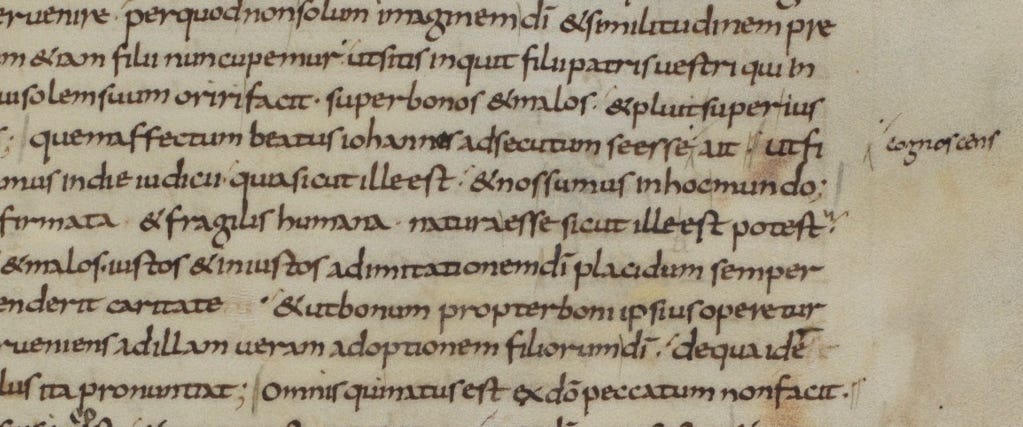 ervenire · per quod non solum imaginem dī & similitudinem pre
m & iam filii nuncupemur · ut sitis inquit filii patris vestri qui in
ui solem suum oriri facit · super bonos & malos · & pluit super ius
; quem affectum beatus iohannes adsecutum se esse ait ut fi
cognoscens
mus in die iudicii · quia sicut ille est · & nos sumus in hoc mundo ;
firmata & fragilis humana natura esse sicut ille est potest
& malos · iustos & iniustos ad imitationem dī placidum semper
enderit caritate & ut bonum propter boni ipsius operetur
rveniens ad illam veram adoptionem filiorum dī · de qua idē
lus ita pronuntiat ; Omnis qui natus est ex dō peccatum non facit ·